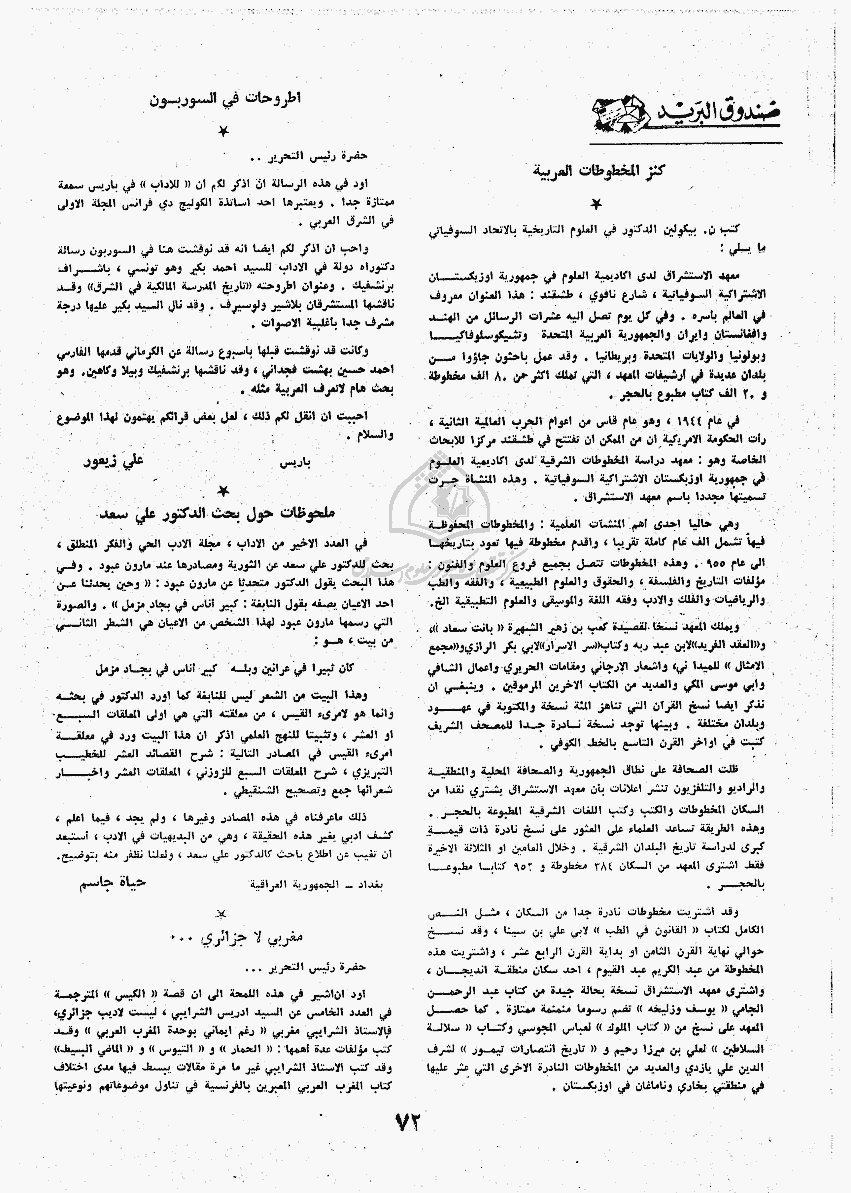 صندوق البريد
كنز المخطوطات العربية
★
كتب ن. بيكولين الدكتور في العلوم التاريخية بالاتحاد السوفياتي
ما يلي :
معهد الاستشراق لدى اكاديمية العلوم في جمهورية اوزبكستان
الاشتراكية السوفياتية ، شارع نافوي ، طشقند : هذا العنوان معروف
في العالم باسره . وفي كل يوم تصل اليه عشرات الرسائل من الهند
وافغانستان وايران والجمهورية العربية المتحدة وتشيكوسلوفاكيا
وبولونيا والولايات المتحدة وبريطانيا . وقد عمل باحثون جاؤوا من
بلدان عديدة في أرشيفات المعهد ، التي تملك اكثر من ٨٠ الف مخطوطة
و ٢٠ الف كتاب مطبوع بالحجر .
في عام ١٩٤٤ ، وهو عام قاس من اعوام الحرب العالمية الثانية ،
رأت الحكومة الامريكية ان من الممكن ان تفتتح في طشقند مركزا للابحاث
الخاصة وهو : معهد دراسة المخطوطات الشرقية لدى اكاديمية العلوم
في جمهورية اوزبكستان الاشتراكية السوفياتية . وهذه المنشأة جرت
تسميتها مجددا باسم معهد الاستشراق.
وهي حاليا احدى اهم المنشآت العلمية : والمخطوطات المحفوظة
فيها تشمل الف عام كاملة تقريبا ، واقدم مخطوطة فيها تعود بتاريخها
الى عام ٩٥٥ . وهذه المخطوطات تتصل بجميع فروع العلوم والفنون :
مؤلفات التاريخ والفلسفة ، والحقوق والعلوم الطبيعية ، والفقه والطب
والرياضيات والفلك والادب وفقه اللغة والموسيقى والعلوم التطبيقية الخ.
ويملك المعهد نسخا لقصيدة كعب بن زهير الشهيرة « بانت سعاد »،
و«العقد الفريد»لابن عبد ربه وكتاب«سر الاسرار»لابي بكر الرازي و«مجمع
الامثال » للميداني، واشعار الارجاني ومقامات الحريري واعمال الشافي
وابي موسى المكي والعديد من الكتاب الاخرين المرموقين . وينبغي ان
نذكر ايضا نسخ القرآن التي تناهز المئة نسخة والمكتوبة في عهود
وبلدان مختلفة . وبينها توجد نسخة نادرة جدا للمصحف الشريف
كتبت في اواخر القرن التاسع بالخط الكوفي .
ظلت الصحافة على نطاق الجمهورية والصحافة المحلية والمنطقية
والراديو والتلفزيون تنشر اعلانات بأن معهد الاستشراق يشتري نقدا من
السكان المخطوطات والكتب وكتب اللغات الشرقية المطبوعة بالحجر .
وهذه الطريقة تساعد العلماء على العثور على نسخ نادرة ذات قيمة
كبرى لدراسة تاريخ البلدان الشرقية . وخلال العامين او الثلاثة الاخيرة
فقط اشترى المعهد من السكان ٣٨٤ مخطوطة و ٩٥٢ كتابا مطبوعا
بالحجر .
وقد اشتريت مخطوطات نادرة جدا من السكان ، مثل النص
الكامل لكتاب « القانون في الطب » لابي علي بن سينا ، وقد نسخ
حوالي نهاية القرن الثامن او بداية القرن الرابع عشر ، واشتريت هذه
المخطوطة من عبد الكريم عبد القيوم ، احد سكان منطقة انديجان ،
واشترى معهد الاستشراق نسخة بحالة جيدة من كتاب عبد الرحمن
الجامي « يوسف وزليخه » تضم رسوما منمنمة ممتازة . كما حصل
المعهد على نسخ من « كتاب الملوك » لعباس المجوسي وكتاب « سلالة
السلاطين » لعلي بن ميرزا رحيم و « تاريخ انتصارات تيمور » لشرف
الدين علي يازدي والعديد من المخطوطات النادرة الاخرى التي عثر عليها
في منطقتي بخاري ونامانغان في اوزبكستان .
اطروحات في السوربون
★
حضرة رئيس التحرير ..
اود في هذه الرسالة ان اذكر لكم ان « للاداب » في باريس سمعة
ممتازة جدا . ويعتبرها احد اساتذة الكوليج دي فرانس المجلة الاولى
في الشرق العربي .
واحب ان اذكر لكم ايضا انه قد نوقشت هنا في السوربون رسالة
دكتوراه دولة في الاداب للسيد احمد بكير وهو تونسي ، باشراف
برنشفيك . وعنوان اطروحته «تاريخ المدرسة المالكية في الشرق» وقد
ناقشها المستشرقان بلاشير ولوسيرف . وقد نال السيد بكير عليها درجة
مشرف جدا باغلبية الاصوات .
وكانت قد نوقشت قبلها باسبوع رسالة عن الكرماني قدمها الفارسي
احمد حسين بهشت فجداني ، وقد ناقشها برنشفيك وبيلا وكاهين. وهو
بحث هام لاتعرف العربية مثله .
احببت ان انقل لكم ذلك ، لعل بعض قرائكم يهتمون لهذا الموضوع
والسلام .
باريس علي زيعور
★
ملحوظات حول بحث الدكتور علي سعد
في العدد الاخير من الاداب ، مجلة الادب الحي والفكر المنطلق ،
بحث للدكتور علي سعد عن الثورية ومصادرها عند مارون عبود . وفي
هذا البحث يقول الدكتور متحدثا عن مارون عبود : « وحين يحدثنا عن
احد الاعيان يصفه بقول النابغة : كبير أناس في بجاد مزمل » . والصورة
التي رسمها مارون عبود لهذا الشخص من الاعيان هي الشطر الثاني
من بيت ، هو :
كأن ثبيرا في عرانين وبله كبير أناس في بجاد مزمل
وهذا البيت من الشعر ليس للنابغة كما اورد الدكتور في بحثه
وانما هو لامرىء القيس ، من معلقته التي هي اولى المعلقات السبع
او العشر ، وتثبيتا للنهج العلمي اذكر ان هذا البيت ورد في معلقة
امرىء القيس في المصادر التالية : شرح القصائد العشر للخطيب
التبريزي ، شرح المعلقات السبع للزوزني ، المعلقات العشر واخبار
شعرائها جمع وتصحيح الشنقيطي .
ذلك ماعرفناه في هذه المصادر وغيرها ، ولم يجد ، فيما اعلم ،
كشف ادبي يغير هذه الحقيقة ، وهي من البديهيات في الادب ، أستبعد
ان تغيب عن اطلاع باحث كالدكتور علي سعد ، ولعلنا نظفر منه بتوضيح.
بغداد – الجمهورية العراقية حياة جاسم
★
مغربي لا جزائري ...
حضرة رئيس التحرير ...
اود ان اشير في هذه اللمحة الى ان قصة « الكيس » المترجمة
في العدد الخامس عن السيد ادريس الشرايبي ، ليست لاديب جزائري،
فالاستاذ الشرايبي مغربي « رغم ايماني بوحدة المغرب العربي » وقد
كتب مؤلفات عدة أهمها : « الحمار » و « التيوس » و « الماضي البسيط»
وقد كتب الاستاذ الشرايبي غير ما مرة مقالات يبسط فيها مدى اختلاف
كتاب المغرب العربي المعبرين بالفرنسية في تناول موضوعاتهم ونوعيتها
٧٢